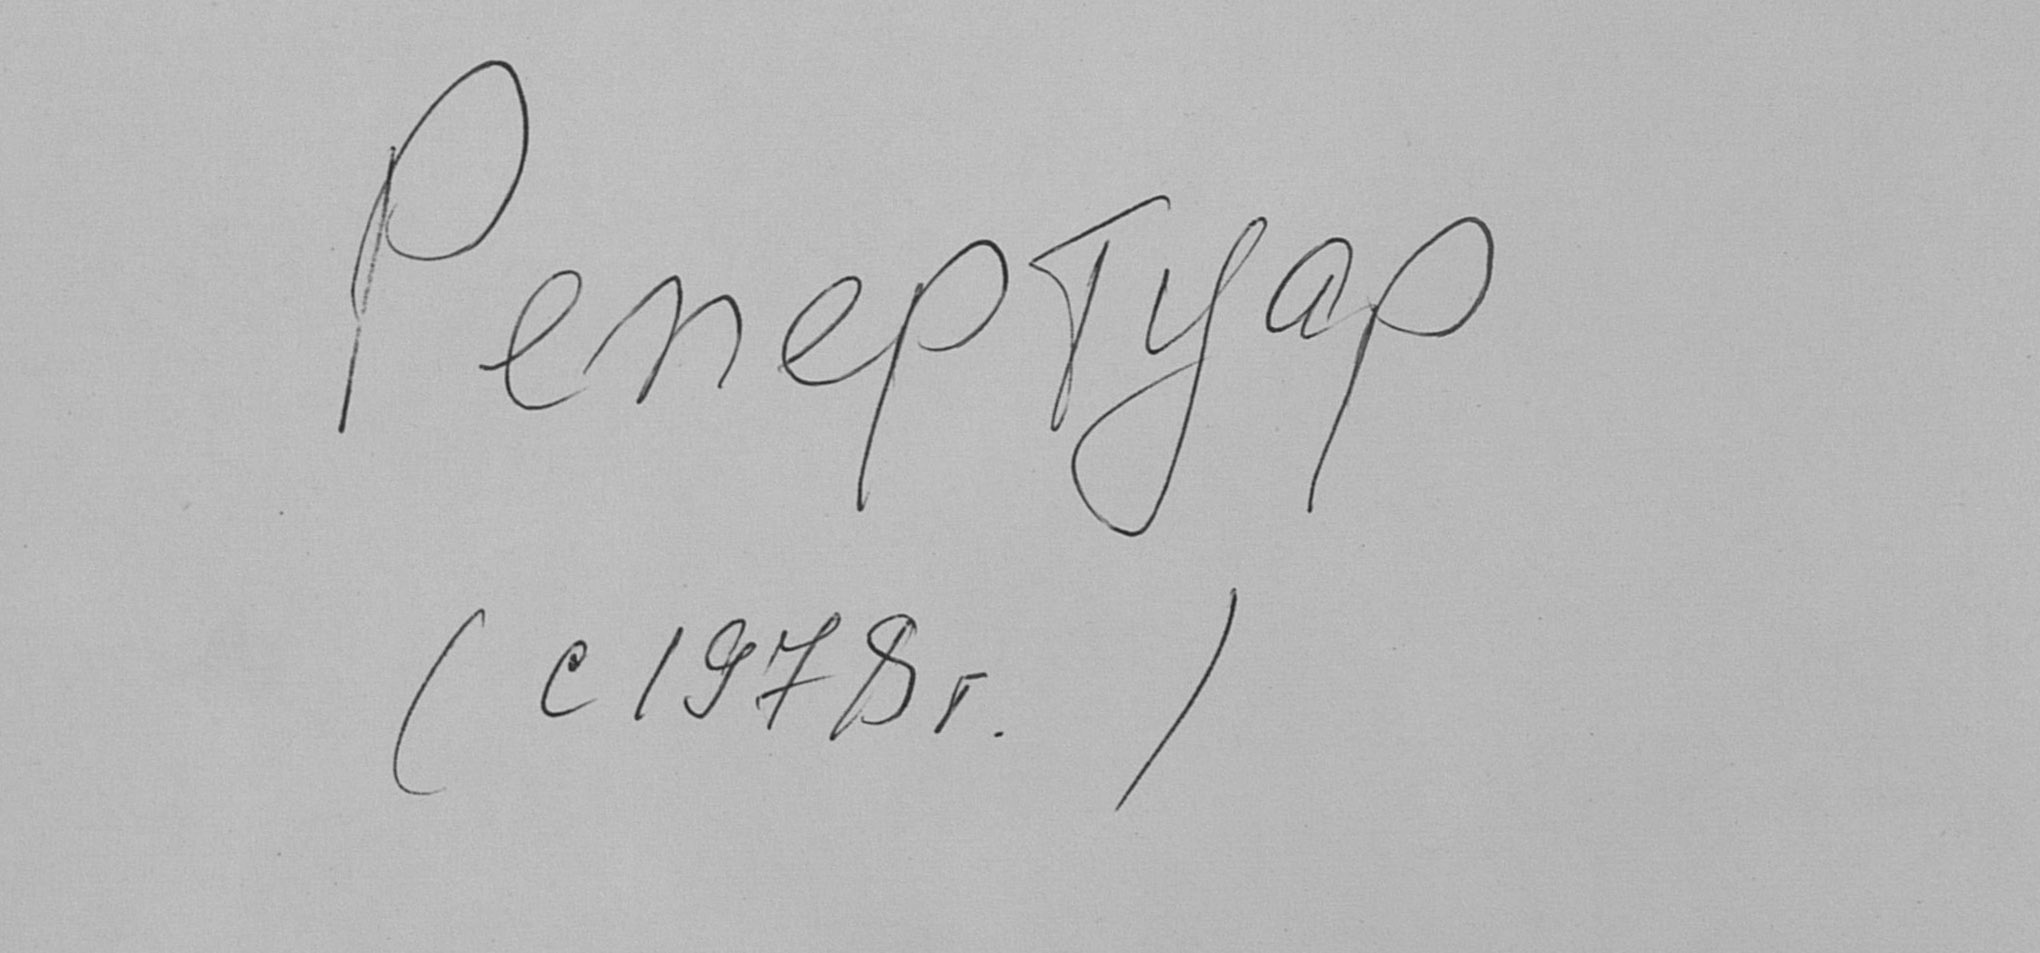 Репертуар
(с 1978г. )